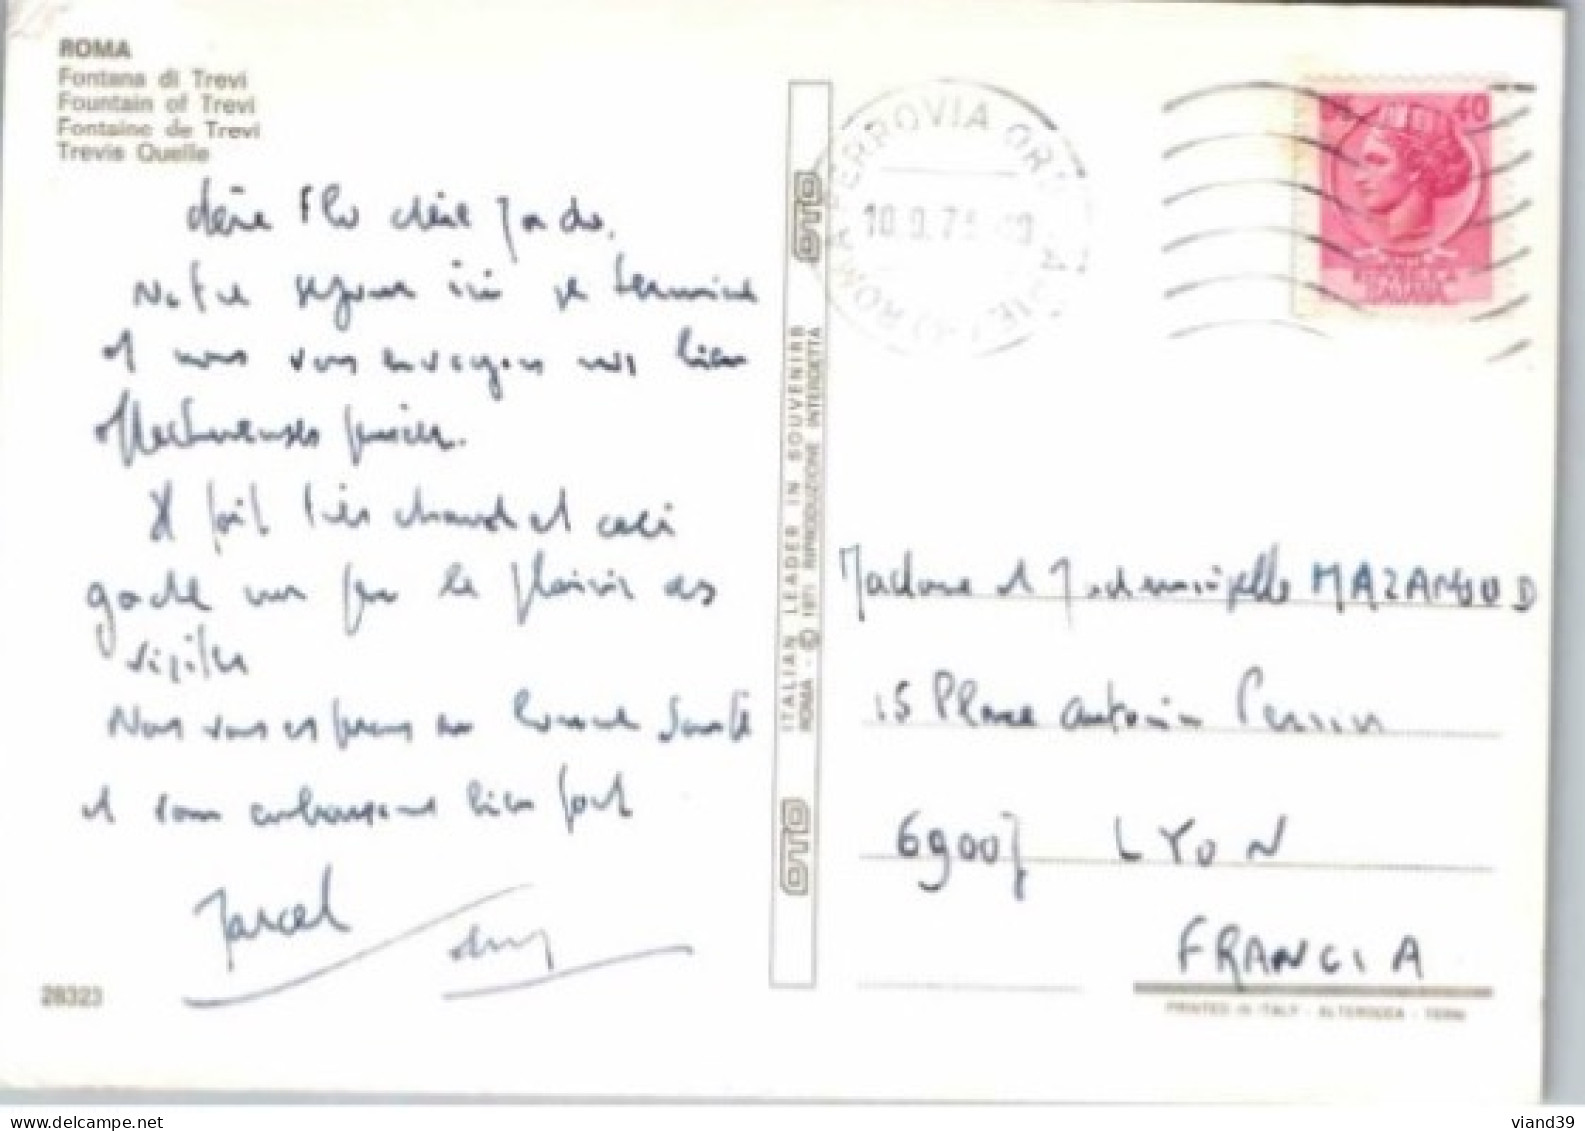 ROMA
Fontana di Trevi
Fountain of Trevi
Fontaine de Trevi
Trevis Quelle
Chère Flo chère
Notre séjour ici se termine
et nous vous envoyons nos bien
affectueuses pensées.
Il fait très chaud et cela
gache un peu le plaisir des
visites
Nous vous espérons en bonne santé
et vous embrassons bien fort
Marcel
28323
OTO
ITALIAN LEADER IN SOUVENIRS
ROMA - © 1971 RIPRODUZIONE INTERDETTA
OTO
ROMA FERROVIA
40
REPUBBLICA
ITALIANA
Madame et Mademoiselle MAZANOUD
15 Place Antonin Perrin
69007 LYON
FRANCIA
PRINTED IN ITALY - ALTEROCCA - TERNI
viand39